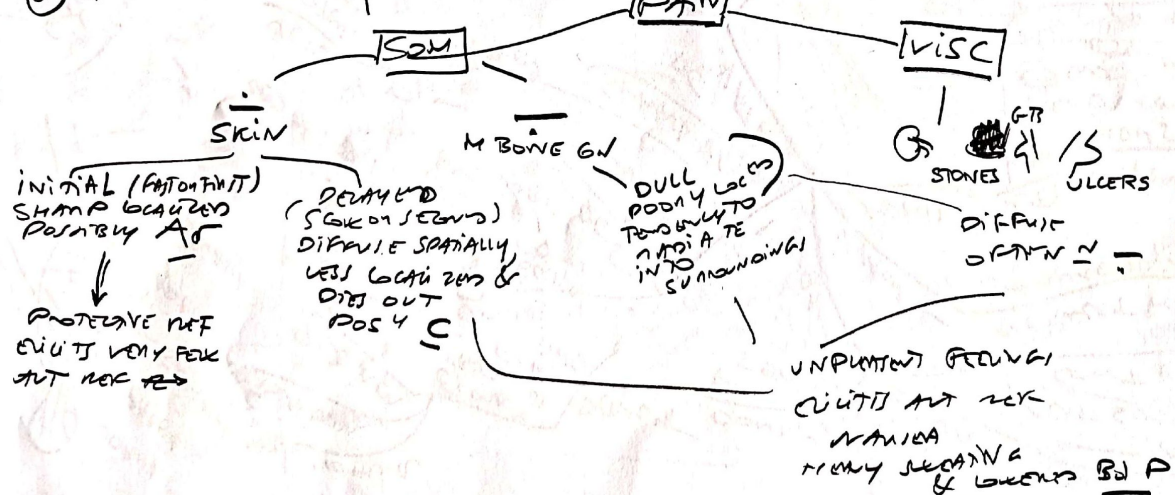 PAIN
SOM
VISC
SKIN
M BONE GN
GB
STONES
ULCERS
INITIAL (FAST OR FIRST)
SHARP LOCALIZED
POSSIBLY Aδ
PROTECTIVE REF
ELICITS VERY FEW
AUT REF
DELAYED
(SLOW OR SECOND)
DIFFUSE SPATIALLY
LESS LOCALIZED &
DIES OUT
POSLY C
DULL
POORLY LOCED
TENDENCY TO
RADIATE
INTO
SURROUNDINGS
DIFFUSE
OFTEN
UNPLEASENT FEELINGS
ELICITS AUT REF
NAUSEA
HEAVY SWEATING
& LOWERED Bd P